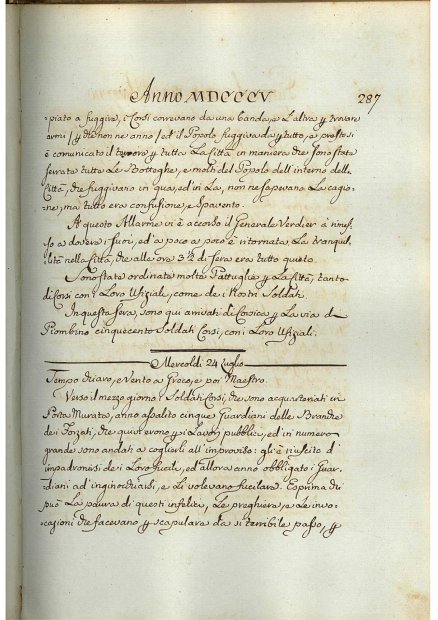 Anno MDCCCV
287
piato a fuggire, i Corsi correvano da una banda, e l'altra p trovare
armi / p che non ne anno / ed il Popolo fuggiva da p tutto, e prestosi
è comunicato il terrore p tutta la Città in maniera che sono state
serrate tutte le Botteghe, e molti del Popolo dell'interno della
Città, che fuggivano in qua, ed in là, non ne sapevano la cagio-
ne, ma tutto era confusione, e spavento.
A questo Allarme vi è accorso il Generale Verdier à rimes-
so a dovere i furori, ed a poco a poco è ritornata la tranquil-
lità nella Città, che alle ore 3½ di sera era tutto quieto.
Sono state ordinate molte Pattuglie p la Città, tanto
di Corsi con i loro Ufiziali, come de i Nostri Soldati.
In questa sera, sono qui arrivati di Corsica p la via di
Piombino cinquecento Soldati Corsi, con i loro Ufiziali.
Mercoldi 24 Luglio
Tempo chiaro, e Vento a Greco, e poi Maestro.
Verso il mezzo giorno i Soldati Corsi, che sono acquartierati in
Porta Murata, anno assalito cinque Guardiani delle Branche
de i Forzati, che qui erono p i Lavori pubblici, ed in numero
grande sono andati a coglierli all'improviso: gli è riuscito d'
impadronirsi de i loro fucili, ed allora anno obbligato i Guar-
diani ad inginochiarsi, e li volevano fucilare. Esprima chi
può la paura di questi infelici, le preghiere, e le invo-
cazioni che facevano p scapulare da sì terribile passo, p